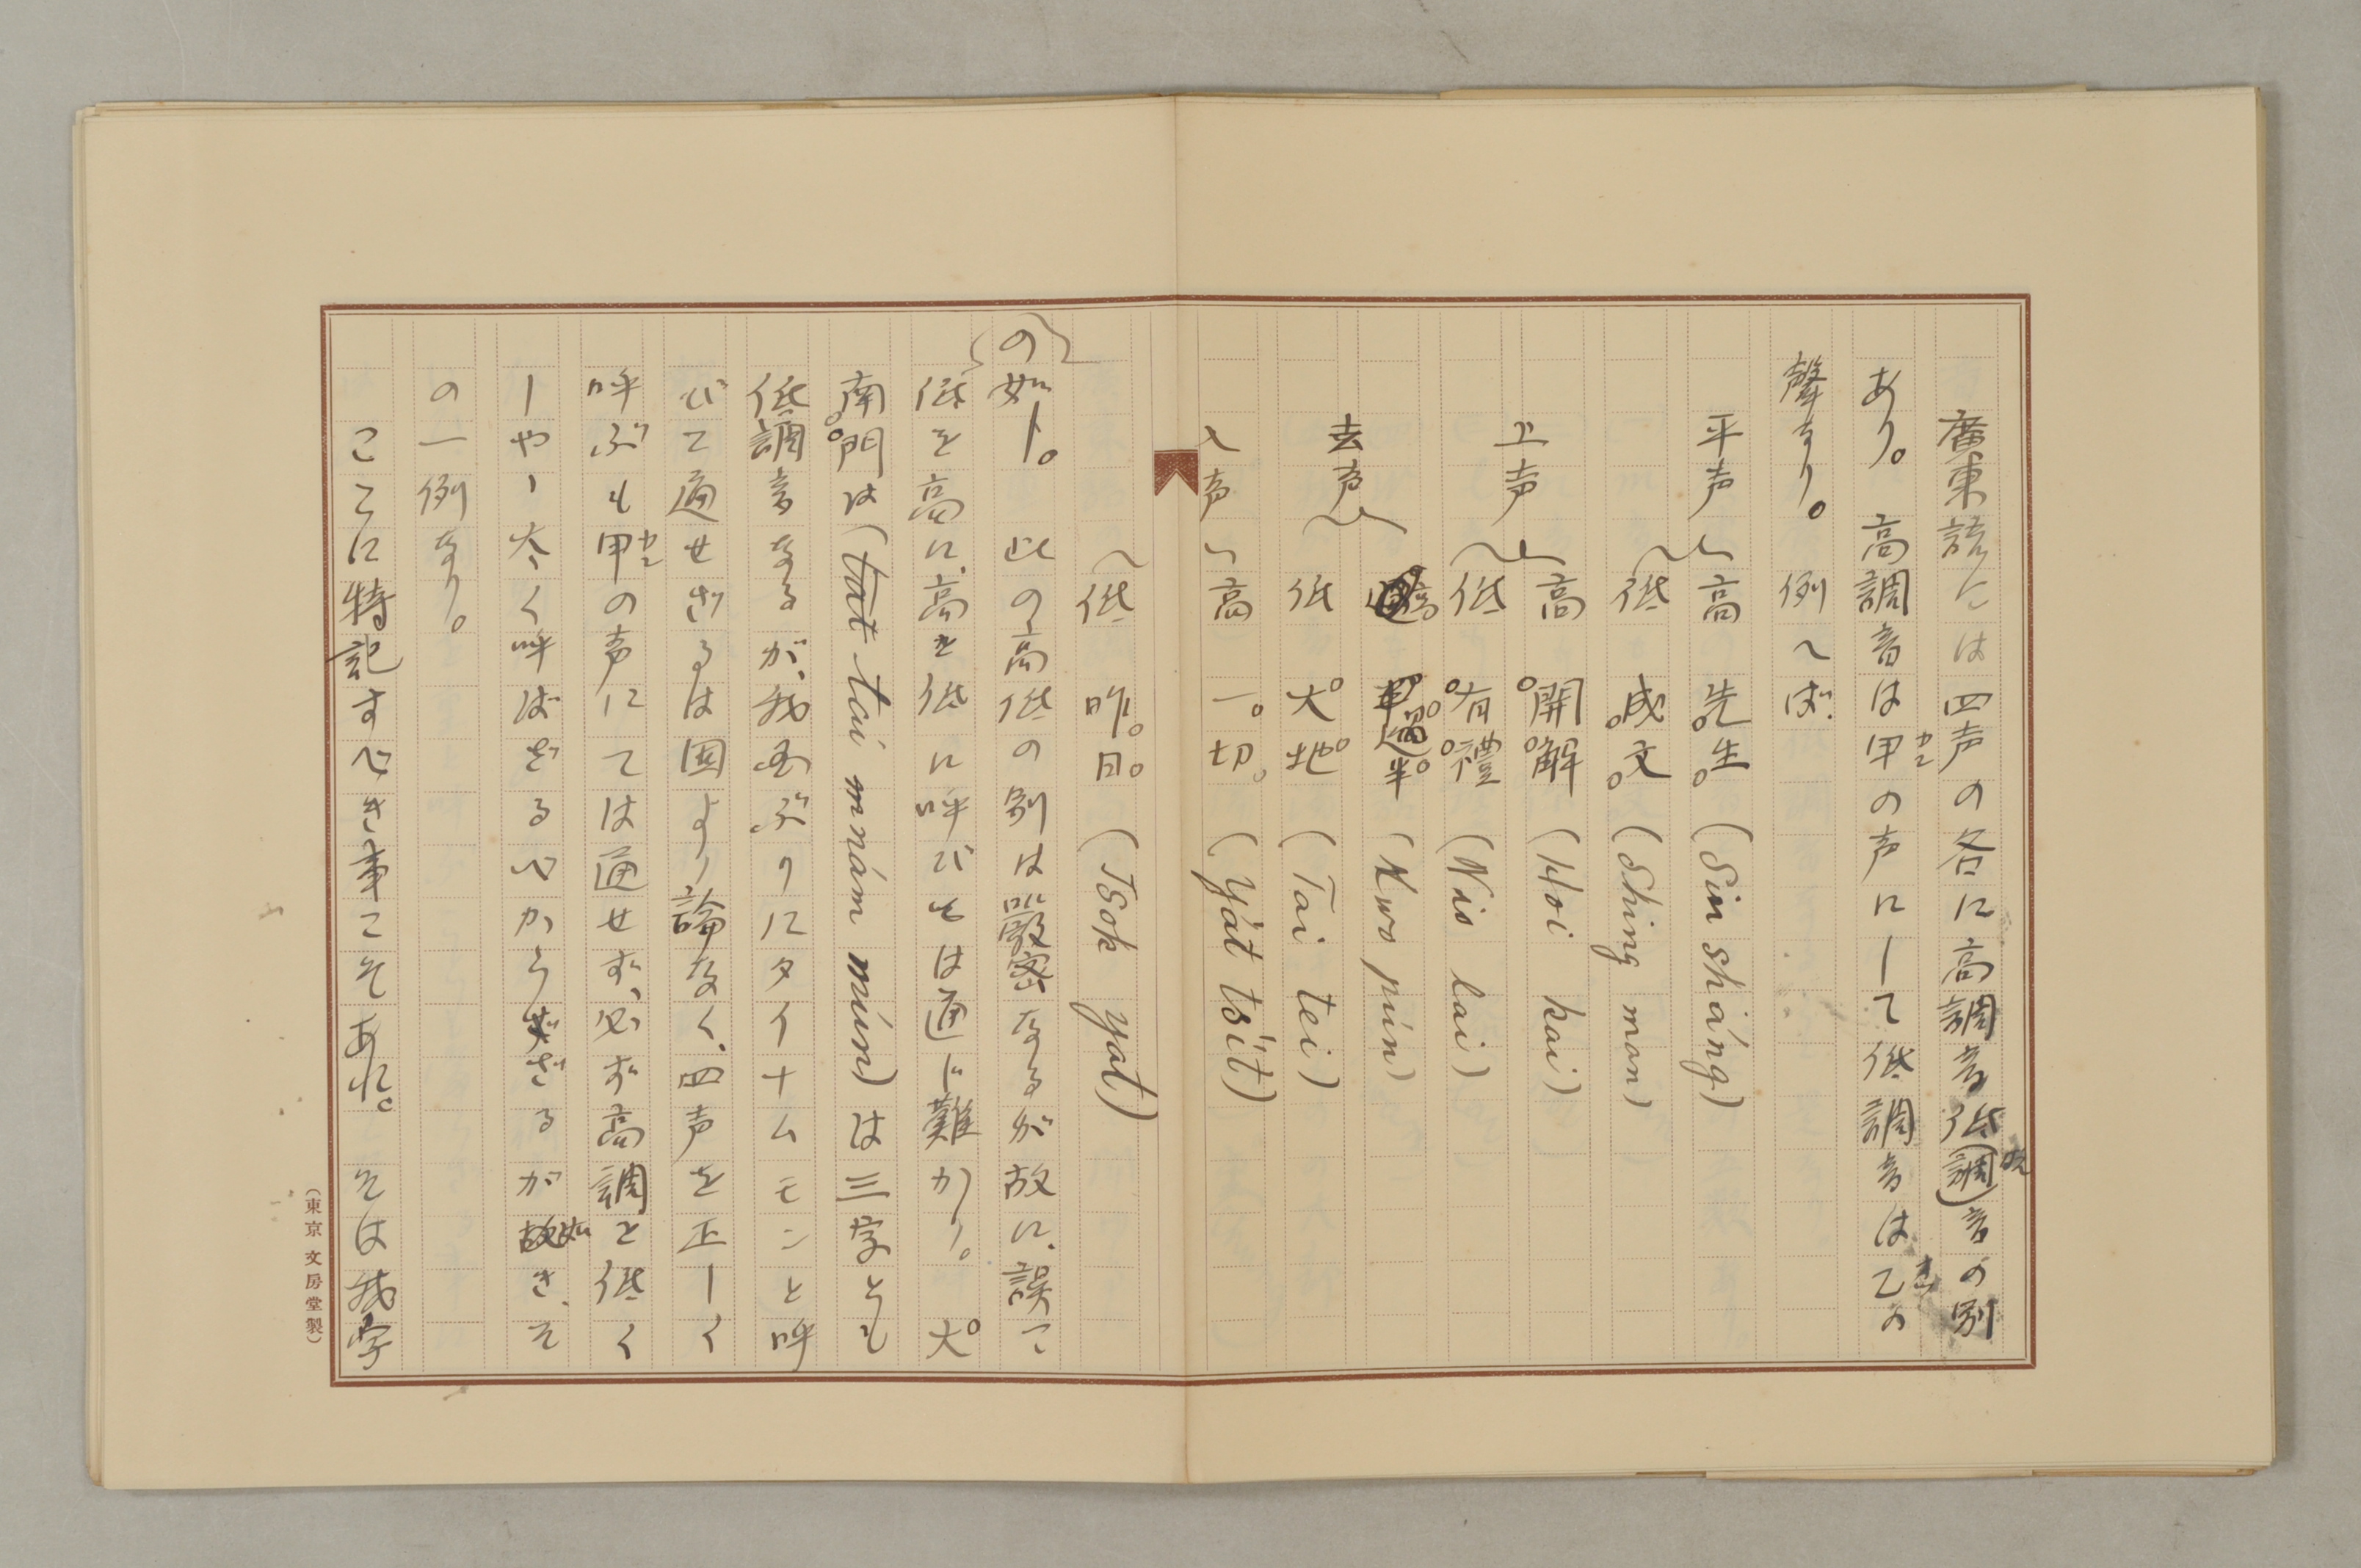 廣東語には四声の各に高調音低調音の別
あり。高調音は甲の声にして低調音は乙の
聲なり。例へば、
平声 高 先生 (Sin sháng)
低 成文 (Shing man)
上声 高 開解 (Hoi kai)
低 有禮 (Nio lai)
去声 高 過半 (Kwo pún)
低 大地 (Tai tei)
入声 高 一切 (yát tsít)
低 昨日 (Tsok yat)
の如し。此の高低の別は嚴密なるが故に、誤つて
低を高に、高を低に呼びては通じ難かり。大
南門は (tai mnám mún) は三字とも
低調音なるが、我西ぶりにタイナムモンと呼
びて通せざるは固より論なく、四声を正しく
呼ぶも甲カンの声にては通せず、必ず高調と低く
しやしく呼ばざるべからざるが如き、そ
の一例なり。
ここに特記すべき事こそあれ。そは我字
(東京 文房堂製)